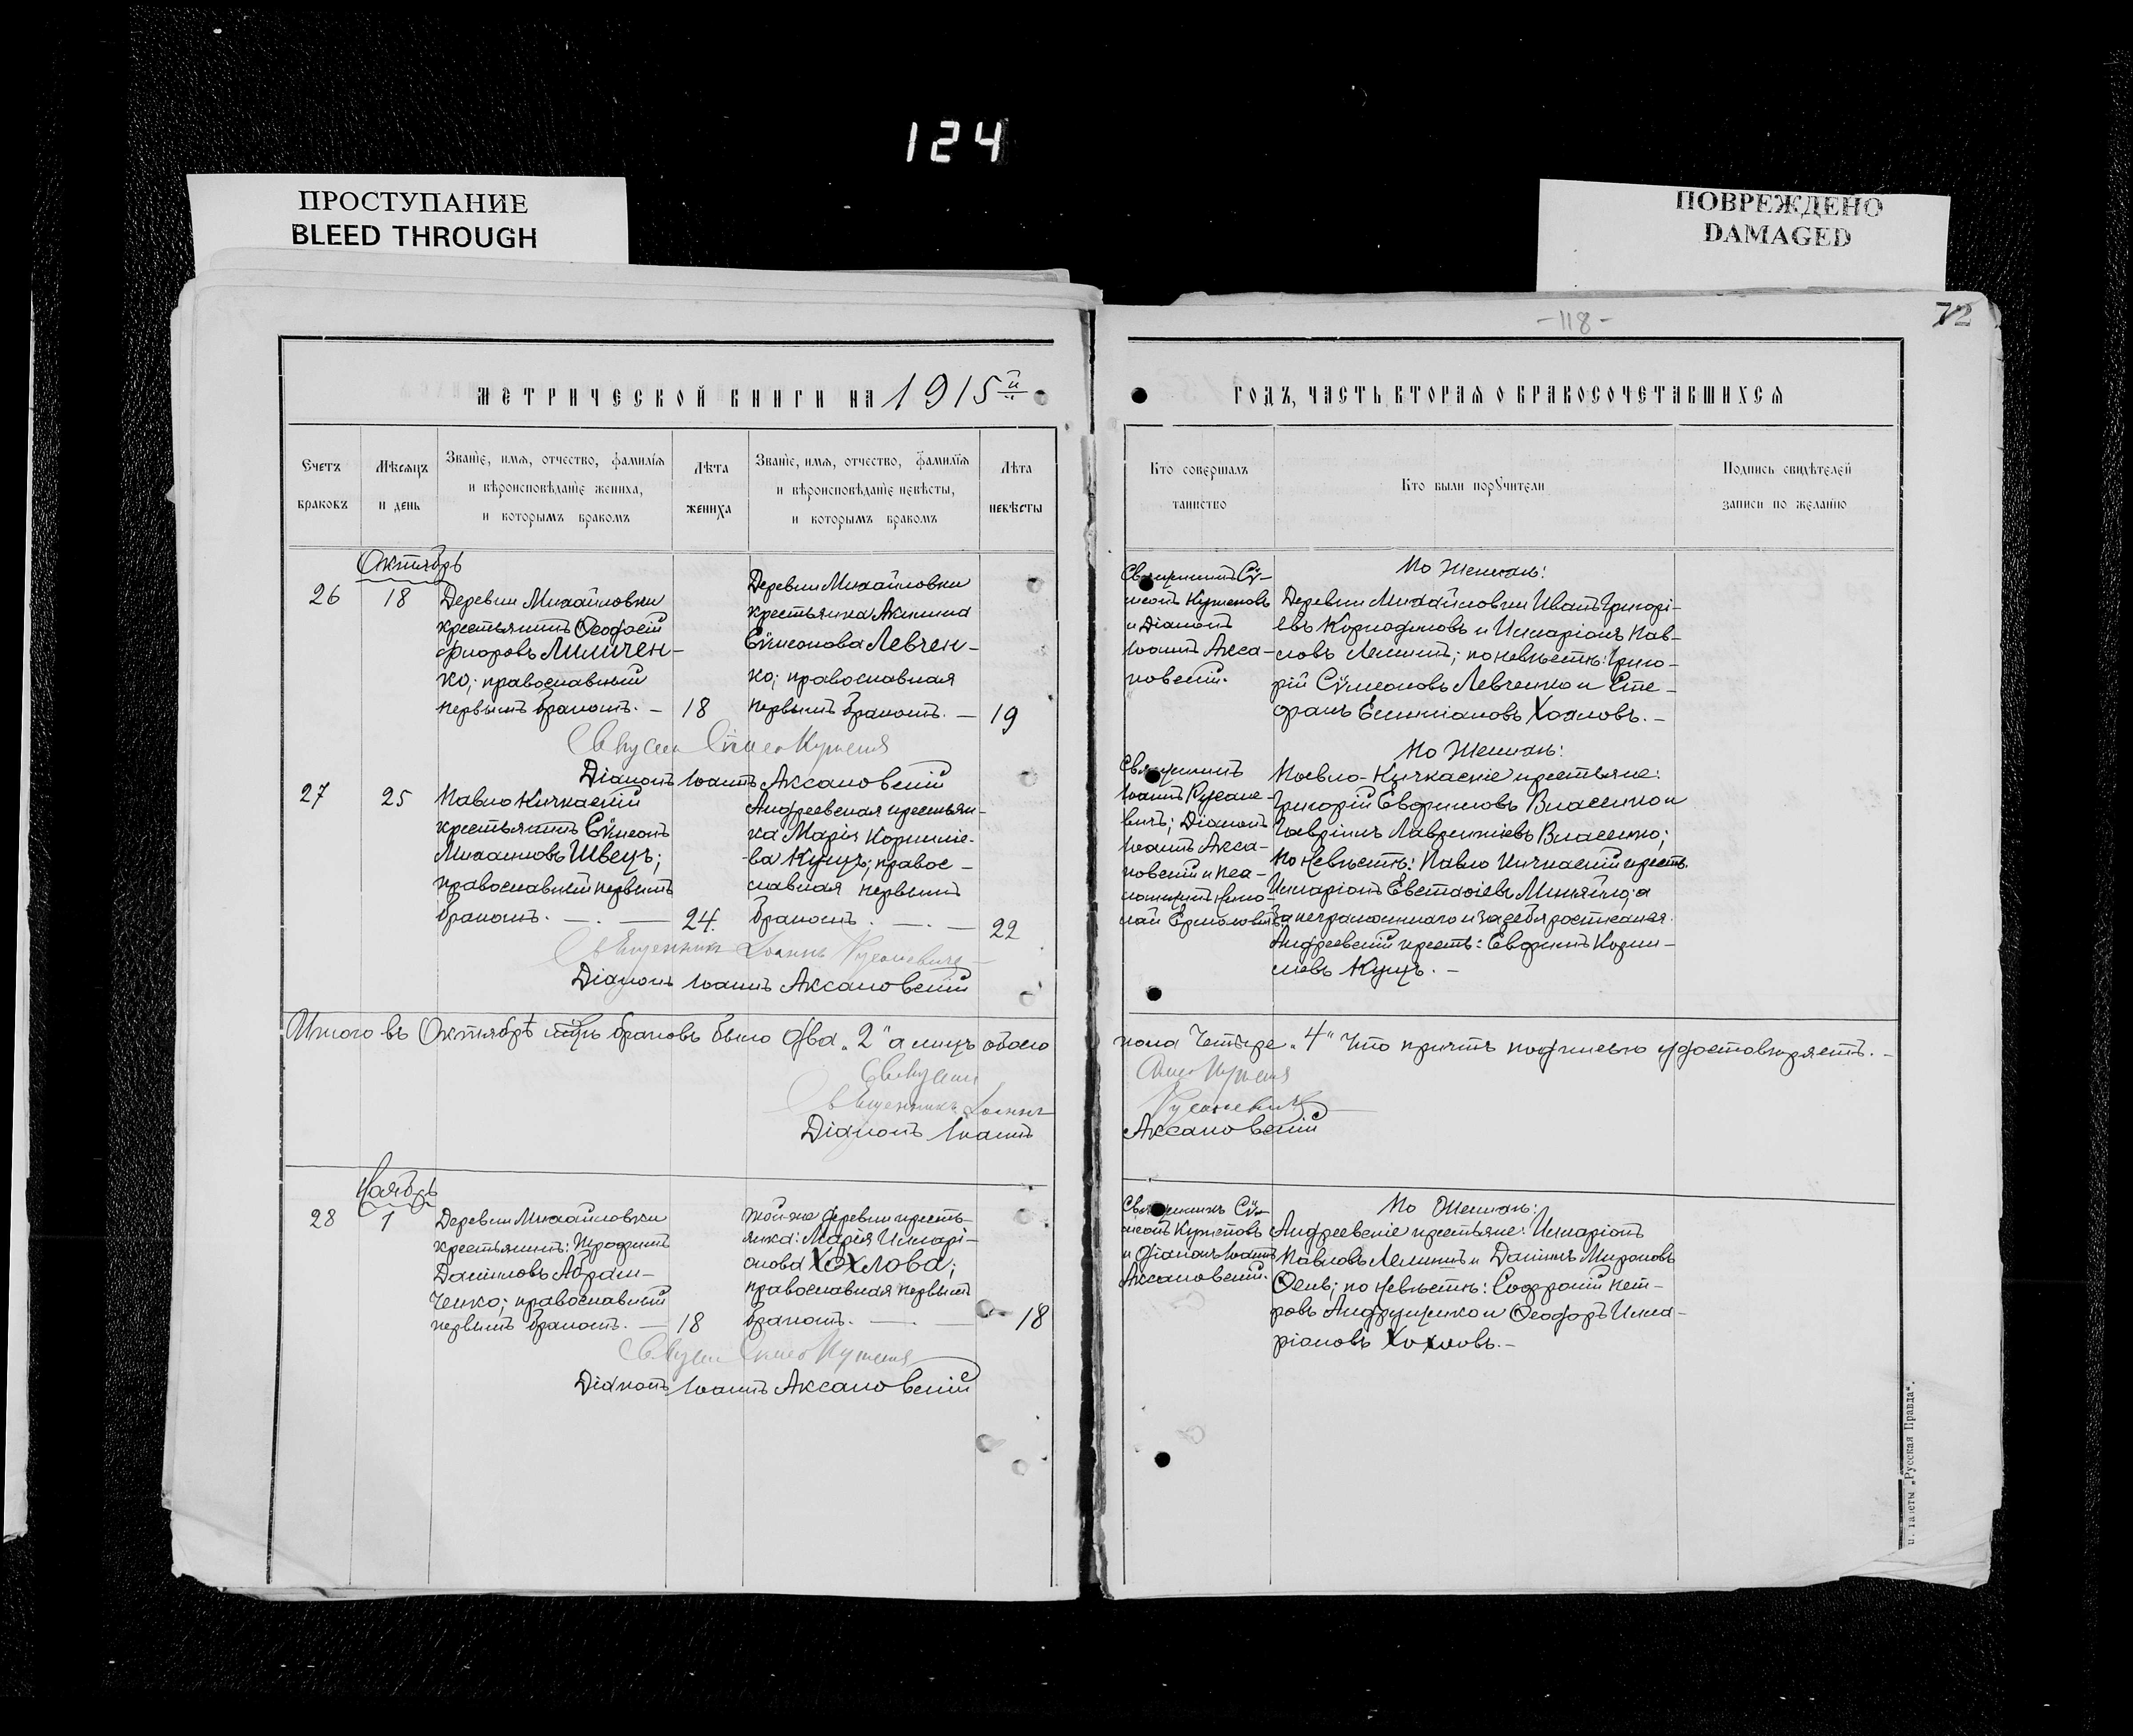 124
ПРОСТУПАНИЕ
BLEED THROUGH
ПОВРЕЖДЕНО
DAMAGED
-118-
72
МЕТРИЧЕСКОЙ КНИГИ НА 1915й
ГОДЪ, ЧАСТЬ ВТОРАЯ О БРАКОСОЧЕТАВШИХСЯ
Счетъ
браковъ
Мѣсяцъ
и день
Званіе, имя, отчество, фамилія
и вѣроисповѣданіе жениха,
и которымъ бракомъ
Лѣта
жениха
Званіе, имя, отчество, фамилія
и вѣроисповѣданіе невѣсты,
и которымъ бракомъ
Лѣта
невѣсты
Кто совершалъ
таинство
Кто были поручители
Подпись свидѣтелей
записи по желанію
Октябрь
26
18
Деревни Михайловки
крестьянинъ Ѳеодосій
Флоровъ Миличен-
ко; православный
первымъ бракомъ. —
18
Деревни Михайловки
крестьянка Акилина
Сѵмеонова Левчен-
ко; православная
первымъ бракомъ. —
19
Священникъ Сѵ-
меонъ
и Діаконъ
Іоаннъ Акса-
ковскій.
По женихѣ:
Деревни Михайловки Иванъ Григорі-
евъ и Иларіонъ Пав-
ловъ; по невѣстѣ: Григо-
рій Сѵмеоновъ Левченко и Сте-
фанъ Хохловъ. —
Діаконъ Іоаннъ Аксаковскій
27
25
Павло Кичкаскій
крестьянинъ Сѵмеонъ
Михаиловъ Швецъ;
православный первымъ
бракомъ. —. —
24.
Андреевская крестьян-
ка Марія Корниліе-
ва Куцъ; правос-
лавная первымъ
бракомъ. —. —
22
Священникъ
Іоаннъ
вичъ; Діаконъ
Іоаннъ Акса-
ковскій и пса-
ломщикъ Нико-
лай
По женихѣ:
Павло-Кичкаскіе крестьяне:
Григорій Евфимовъ Власенко и
Гавріилъ Лаврентіевъ Власенко;
по невѣстѣ: Павло Кичкаскій крест.
Иларіонъ Евстаѳіевъ а
за неграмотнаго и за себя росписался
Андреевскій крест: Евфимъ Корни-
ліевъ Куцъ. —
Священникъ Іоаннъ
Діаконъ Іоаннъ Аксаковскій
Итого въ Октябрѣ мцѣ браковъ было два „2" а лицъ обоего
пола Четыре „4" Что причтъ подписью удостовѣряетъ. —
Священникъ Іоаннъ
Діаконъ Іоаннъ
Аксаковскій
Ноябрь
28
1
Деревни Михайловки
крестьянинъ: Трофимъ
Даніиловъ Абрам-
ченко; православный
первымъ бракомъ. —
18
Той же деревни кресть-
янка: Марія Иларі-
онова Хохлова;
православная первымъ
бракомъ. —. —
18
Священникъ Сѵ-
меонъ
и діаконъ Іоаннъ
Аксаковскій.
По женихѣ:
Андреевскіе крестьяне: Иларіонъ
Павловъ и Даніилъ Мироновъ
по невѣстѣ: Софроній Пет-
ровъ Андрущенко и Ѳеодоръ Ила-
ріоновъ Хохловъ. —
Діаконъ Іоаннъ Аксаковскій
газеты „Русская Правда".